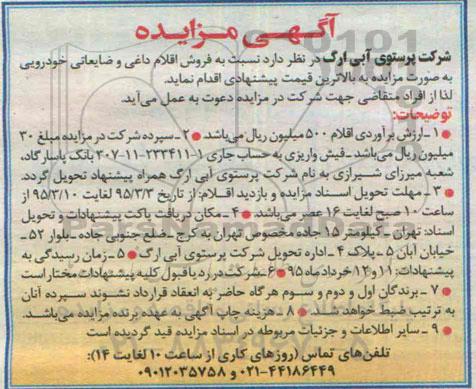 آگهی مزایده
شرکت پرستوی آبی ارگ در نظر دارد نسبت به فروش اقلام داغی و ضایعاتی خودرویی
به صورت مزایده به بالاترین قیمت پیشنهادی اقدام نماید.
لذا از افراد متقاضی جهت شرکت در مزایده دعوت به عمل می‌آید.
توضیحات:
● ۱- ارزش برآوردی اقلام ۵۰۰ میلیون ریال می‌باشد. ● ۲- سپرده شرکت در مزایده مبلغ ۳۰
میلیون ریال می‌باشد - فیش واریزی به حساب جاری ۱-۲۳۳۴۱۱-۱۱-۳۰۷ بانک پاسارگاد،
شعبه میرزای شیرازی به نام شرکت پرستوی آبی ارگ همراه پیشنهاد تحویل گردد.
● ۳- مهلت تحویل اسناد مزایده و بازدید اقلام: از تاریخ ۹۵/۳/۳ لغایت ۹۵/۳/۱۰ از
ساعت ۱۰ صبح لغایت ۱۶ عصر می‌باشد. ● ۴- مکان دریافت پاکت پیشنهادات و تحویل
اسناد: تهران - کیلومتر ۱۵ جاده مخصوص تهران به کرج - ضلع جنوبی جاده - بلوار ۵۲ -
خیابان آبان ۵ - پلاک ۴ - اداره تحویل شرکت پرستوی آبی ارگ ● ۵- زمان رسیدگی به
پیشنهادات: ۱۱ و ۱۲ خرداد ماه ۹۵ ● ۶- شرکت در رد یا قبول کلیه پیشنهادات مختار است
● ۷- برندگان اول و دوم و سوم هرگاه حاضر به انعقاد قرارداد نشوند سپرده آنان
به ترتیب ضبط خواهد شد. ● ۸- هزینه چاپ آگهی به عهده برنده مزایده می‌باشد.
● ۹- سایر اطلاعات و جزئیات مربوطه در اسناد مزایده قید گردیده است
تلفن‌های تماس (روزهای کاری از ساعت ۱۰ لغایت ۱۴):
۰۲۱-۴۴۱۸۶۴۴۹ و ۰۹۰۱۲۰۳۵۷۵۸